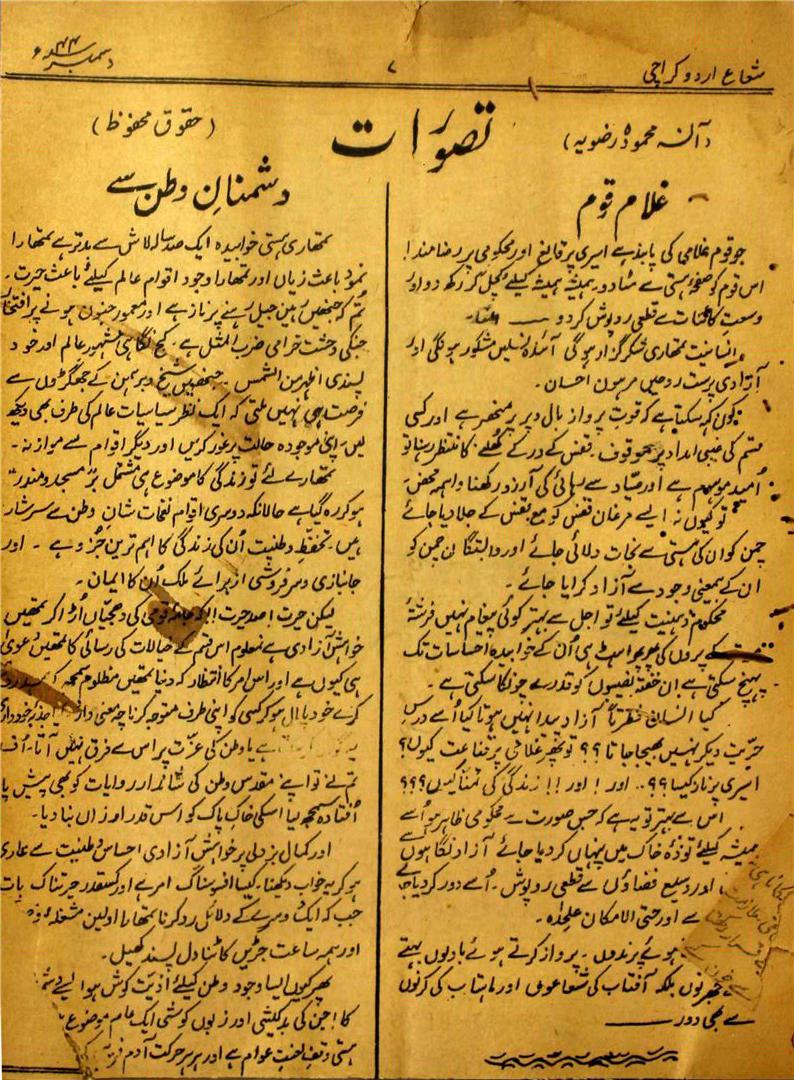 شعاع اردو کراچی
۷
دسمبر ۴۴ء
تصوّرات
(آنسہ محمودہ رضویہ)
(حقوق محفوظ)
غلام قوم
جو قوم غلامی کی پابند ہے اسیری پر قانع اور محکومی پر رضامند!
اس قوم کو صفحۂ ہستی سے مٹا دو ہمیشہ ہمیشہ کیلئے کچل کر رکھ دو اور
وسعت کائنات سے قطعی روپوش کر دو
انسانیت تمھاری شکر گزار ہوگی آئندہ نسلیں مشکور ہونگی اور
آزادی پرست روحیں مرہون احسان۔
کون کہہ سکتا ہے کہ قوت پرواز بال و پر پر منحصر ہے اور کسی
قسم کی غیبی امداد پر موقوف۔ قفس کے در کے کھلنے کا منتظر رہنا تو
اُمید موہوم ہے اور صیّاد سے رہائی کی آرزو رکھنا واہمہ محض۔
تو کیوں نہ ایسے مرغان قفس کو مع قفس کے جلا دیا جائے
چمن کو ان کی ہستی سے نجات دلائی جائے اور وابستگان چمن کو
ان کے بمعنی وجود سے آزاد کرایا جائے۔
محکوم ذہنیت کیلئے تو اجل سے بہتر کوئی پیغام نہیں فرشتۂ
کے پروں کی ہی اُن کے خوابیدہ احساسات تک
پہنچ سکتی ہے ان خفتہ نصیبوں کو قدرے چونکا سکتی ہے۔
کیا انسان فطرتاً آزاد پیدا نہیں ہوتا کیا اُسے درسِ
حریّت دیکر نہیں بھیجا جاتا؟؟ تو پھر غلامی پر قناعت کیوں؟
اسیری پر ناز کیسا؟؟.. اور! اور!! زندگی کی تمنا کیوں؟؟؟
اس سے بہتر تو یہ ہے کہ جس صورت سے محکومی ظاہر ہو اُسے
ہمیشہ کیلئے تودۂ خاک میں پنہاں کر دیا جائے آزاد نگاہوں
اور وسیع فضاؤں سے قطعی روپوش۔ اُسے دور کر دیا جا
ے اور حتی الامکان علیحدہ۔
ہوئے پرندوں۔ پرواز کرتے ہوئے بادلوں بہتے
جھرنوں بلکہ آفتاب کی شعاعوں اور ماہتاب کی کرنوں
سے بھی دور
دشمنانِ وطن سے
تمھاری ہستی خوابیدہ ایک صد سالہ لاش سے بدتر ہے تمھارا
نمود باعث زیاں اور تمھارا وجود اقوام عالم کیلئے باعث حیرت۔
تم کہ جنھیں رہین جیل رہنے پر ناز ہے اور معمور جنون ہونے پر افتخار
جنکی وحشت خرامی ضرب المثل ہے۔ کج نگاہی مشہور عالم اور خود
پسندی اظہر من الشمس۔ جنھیں شیخ و برہمن کے جھگڑوں سے
فرصت ہی نہیں ملتی کہ ایک نظر سیاسیات عالم کی طرف بھی دیکھ
لیں۔ اپنی موجودہ حالت پر غور کریں اور دیگر اقوام سے موازنہ۔
تمھارے لئے تو زندگی کا موضوع ہی مشتمل بر مسجد و مندر
ہو کر رہ گیا ہے حالانکہ دوسری اقوام نغمات شان وطن سے سرشار
ہیں۔ تحفظِ وطنیت اُن کی زندگی کا اہم ترین جُزو ہے۔ اور
جانبازی و سرفروشی از برائے ملک اُن کا ایمان۔
لیکن حیرت! صد حیرت!! کہ قومی کی دھجیاں اُڑا کر تمھیں
خواہش آزادی ہے نہ معلوم اس قسم کے خیالات کی رسائی کا تمھیں دعویٰ
ہی کیوں ہے اور اس امر کا انتظار کہ دنیا تمھیں مظلوم سمجھ کر
کرے خود پامال ہو کر کسی کو اپنی طرف متوجہ کرنا چہ معنی دارد جذبہ خودداری
ہے یا وطن کی عزّت پر اس سے فرق نہیں آتا۔ اُف
تم نے تو اپنے مقدس وطن کی شاندار روایات کو بھی پیش پا
اُفتادہ سمجھ لیا اسکی خاکِ پاک کو اس قدر ارزاں بنا دیا۔
اور کمال بزدلی پر خواہش آزادی احساس وطنیت سے عاری
ہو کر یہ خواب دیکھنا۔ کیسا افسوسناک امر ہے اور کسقدر حیرتناک بات
جب کہ ایک دوسرے کے دلائل رد کرنا تمھارا اولین مشغلہ
اور ہمہ ساعت جڑیں کاٹنا دل پسند کھیل۔
پھر کیوں ایسا وجود وطن کیلئے اذیّت کوش ہو ایسے
کا! جن کی بدکیشی اور زبوں کوشی ایک عام موضوع
ہستی وقف لعنتِ عوام ہے اور ہر ہر حرکت آدم